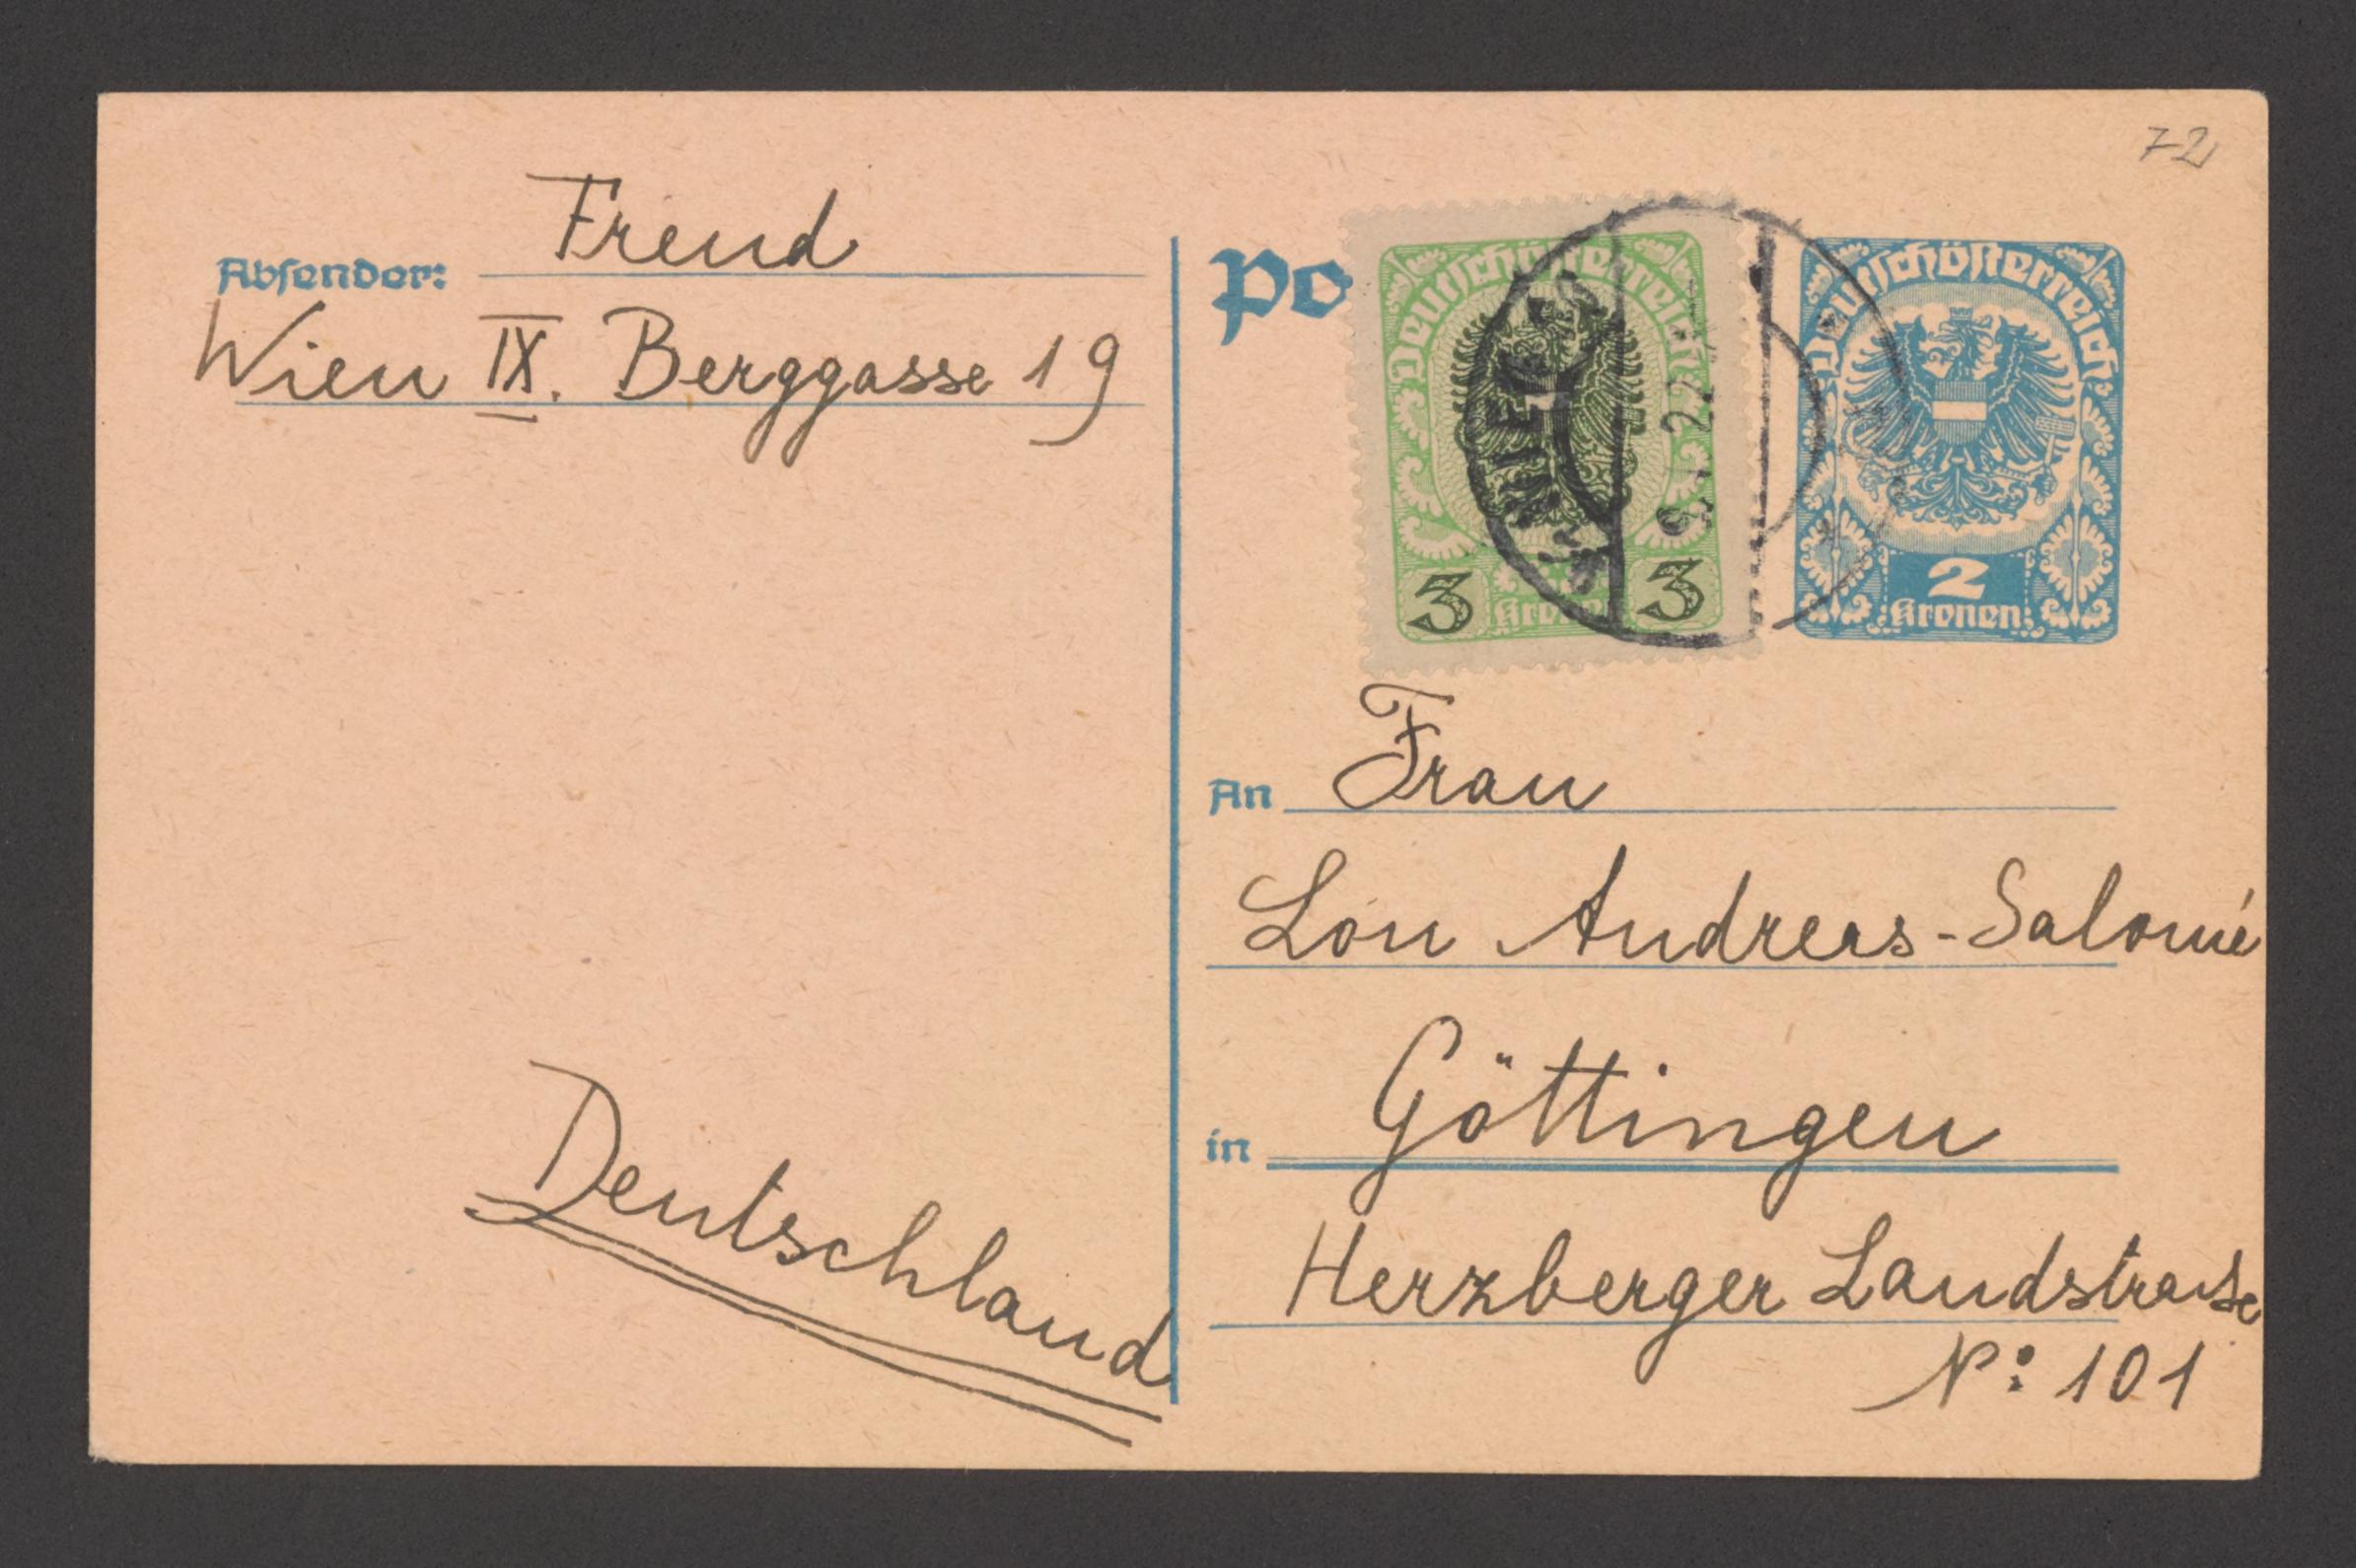 72
Absender: Freud
Wien IX. Berggasse 19
Po
Deutschösterreich
3 Kronen 3
WIEN
22
Deutschösterreich
2
Kronen
An Frau
Lou Andreas-Salomé
in Göttingen
Herzberger Landstrasse
No: 101
Deutschland